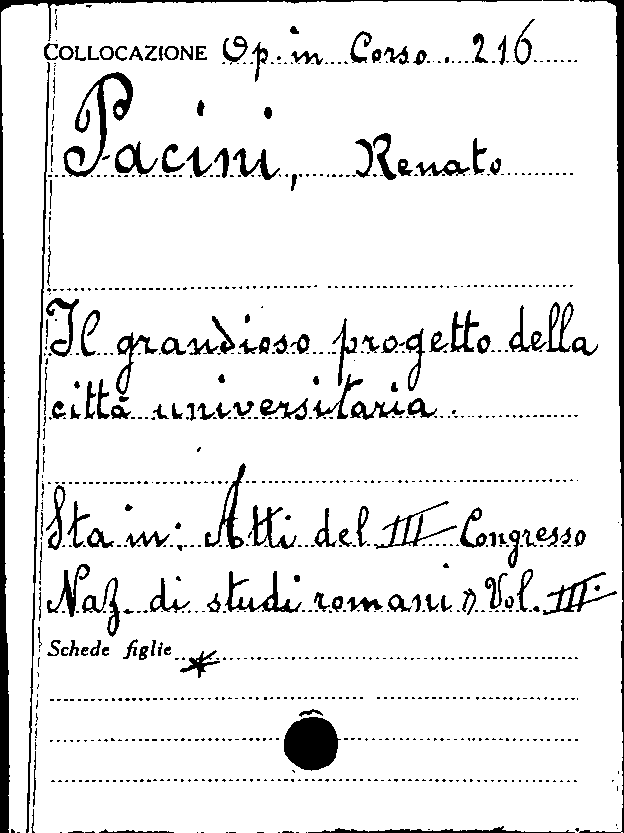 COLLOCAZIONE Op. in Corso. 216
Pacini, Renato
Il grandioso progetto della
città universitaria.
Sta in: Atti del III Congresso
Naz. di studi romani » Vol. III.
Schede figlie *